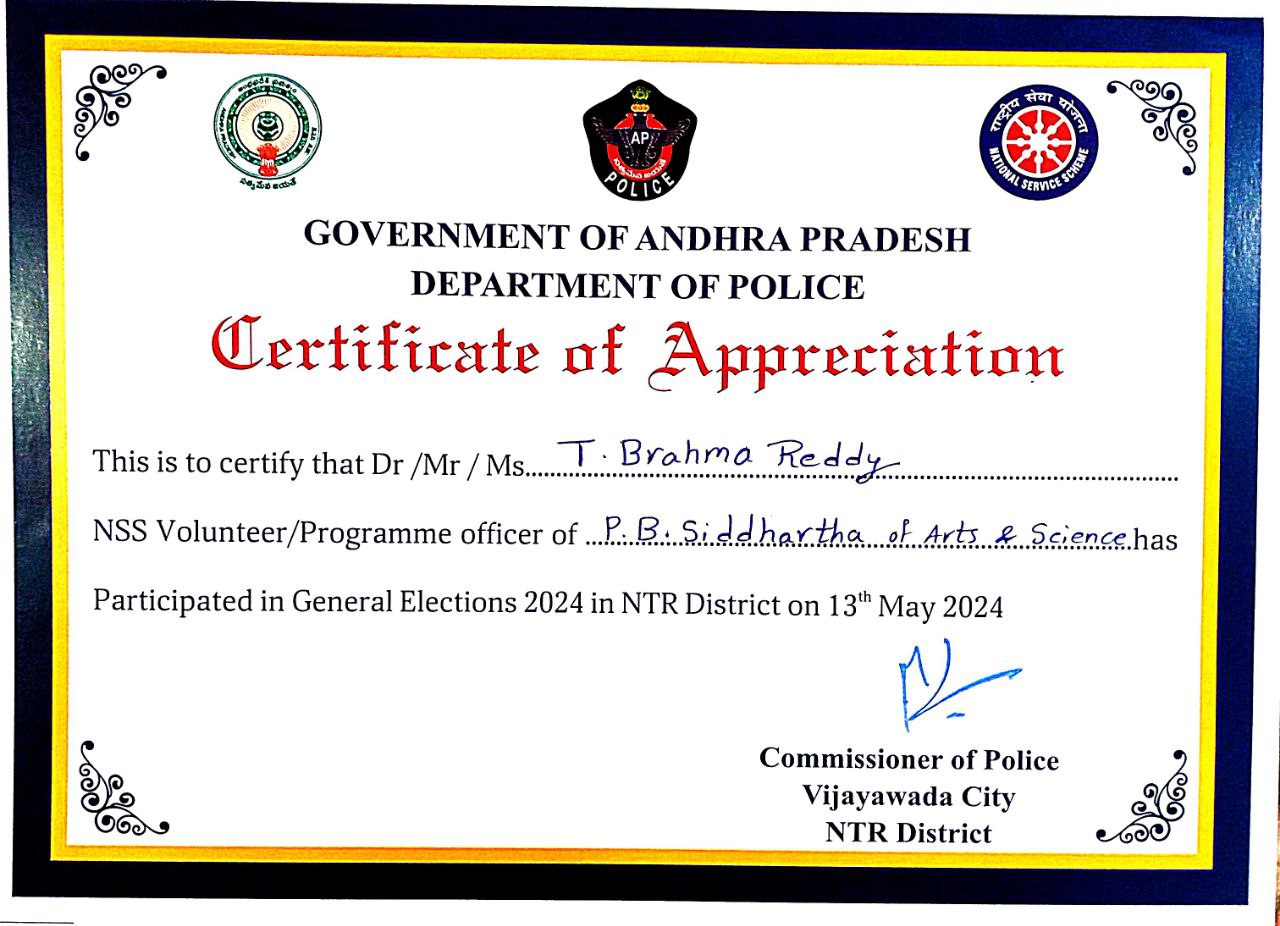 సత్యమేవ జయతే
AP
సత్యమేవ జయతే
POLICE
राष्ट्रीय सेवा योजना
NATIONAL SERVICE SCHEME
GOVERNMENT OF ANDHRA PRADESH
DEPARTMENT OF POLICE
Certificate of Appreciation
This is to certify that Dr /Mr / Ms. T. Brahma Reddy
NSS Volunteer/Programme officer of P. B. Siddhartha of Arts & Science has
Participated in General Elections 2024 in NTR District on 13th May 2024
Commissioner of Police
Vijayawada City
NTR District